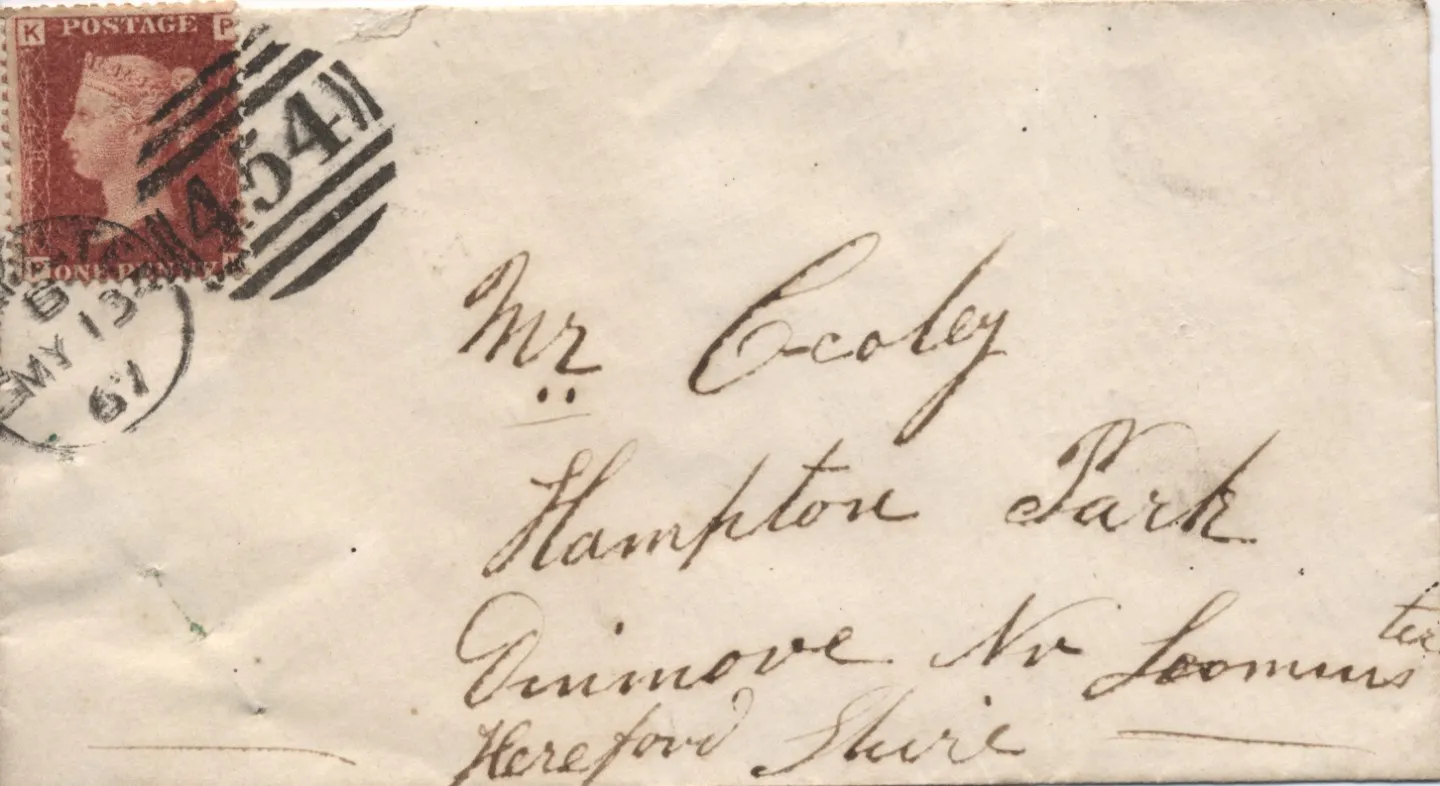 K POSTAGE P
ONE PENNY
454
MY 13
67
Mr Ecoley
Hampton Park
Dinmore Nr Leominster
Hereford Shire